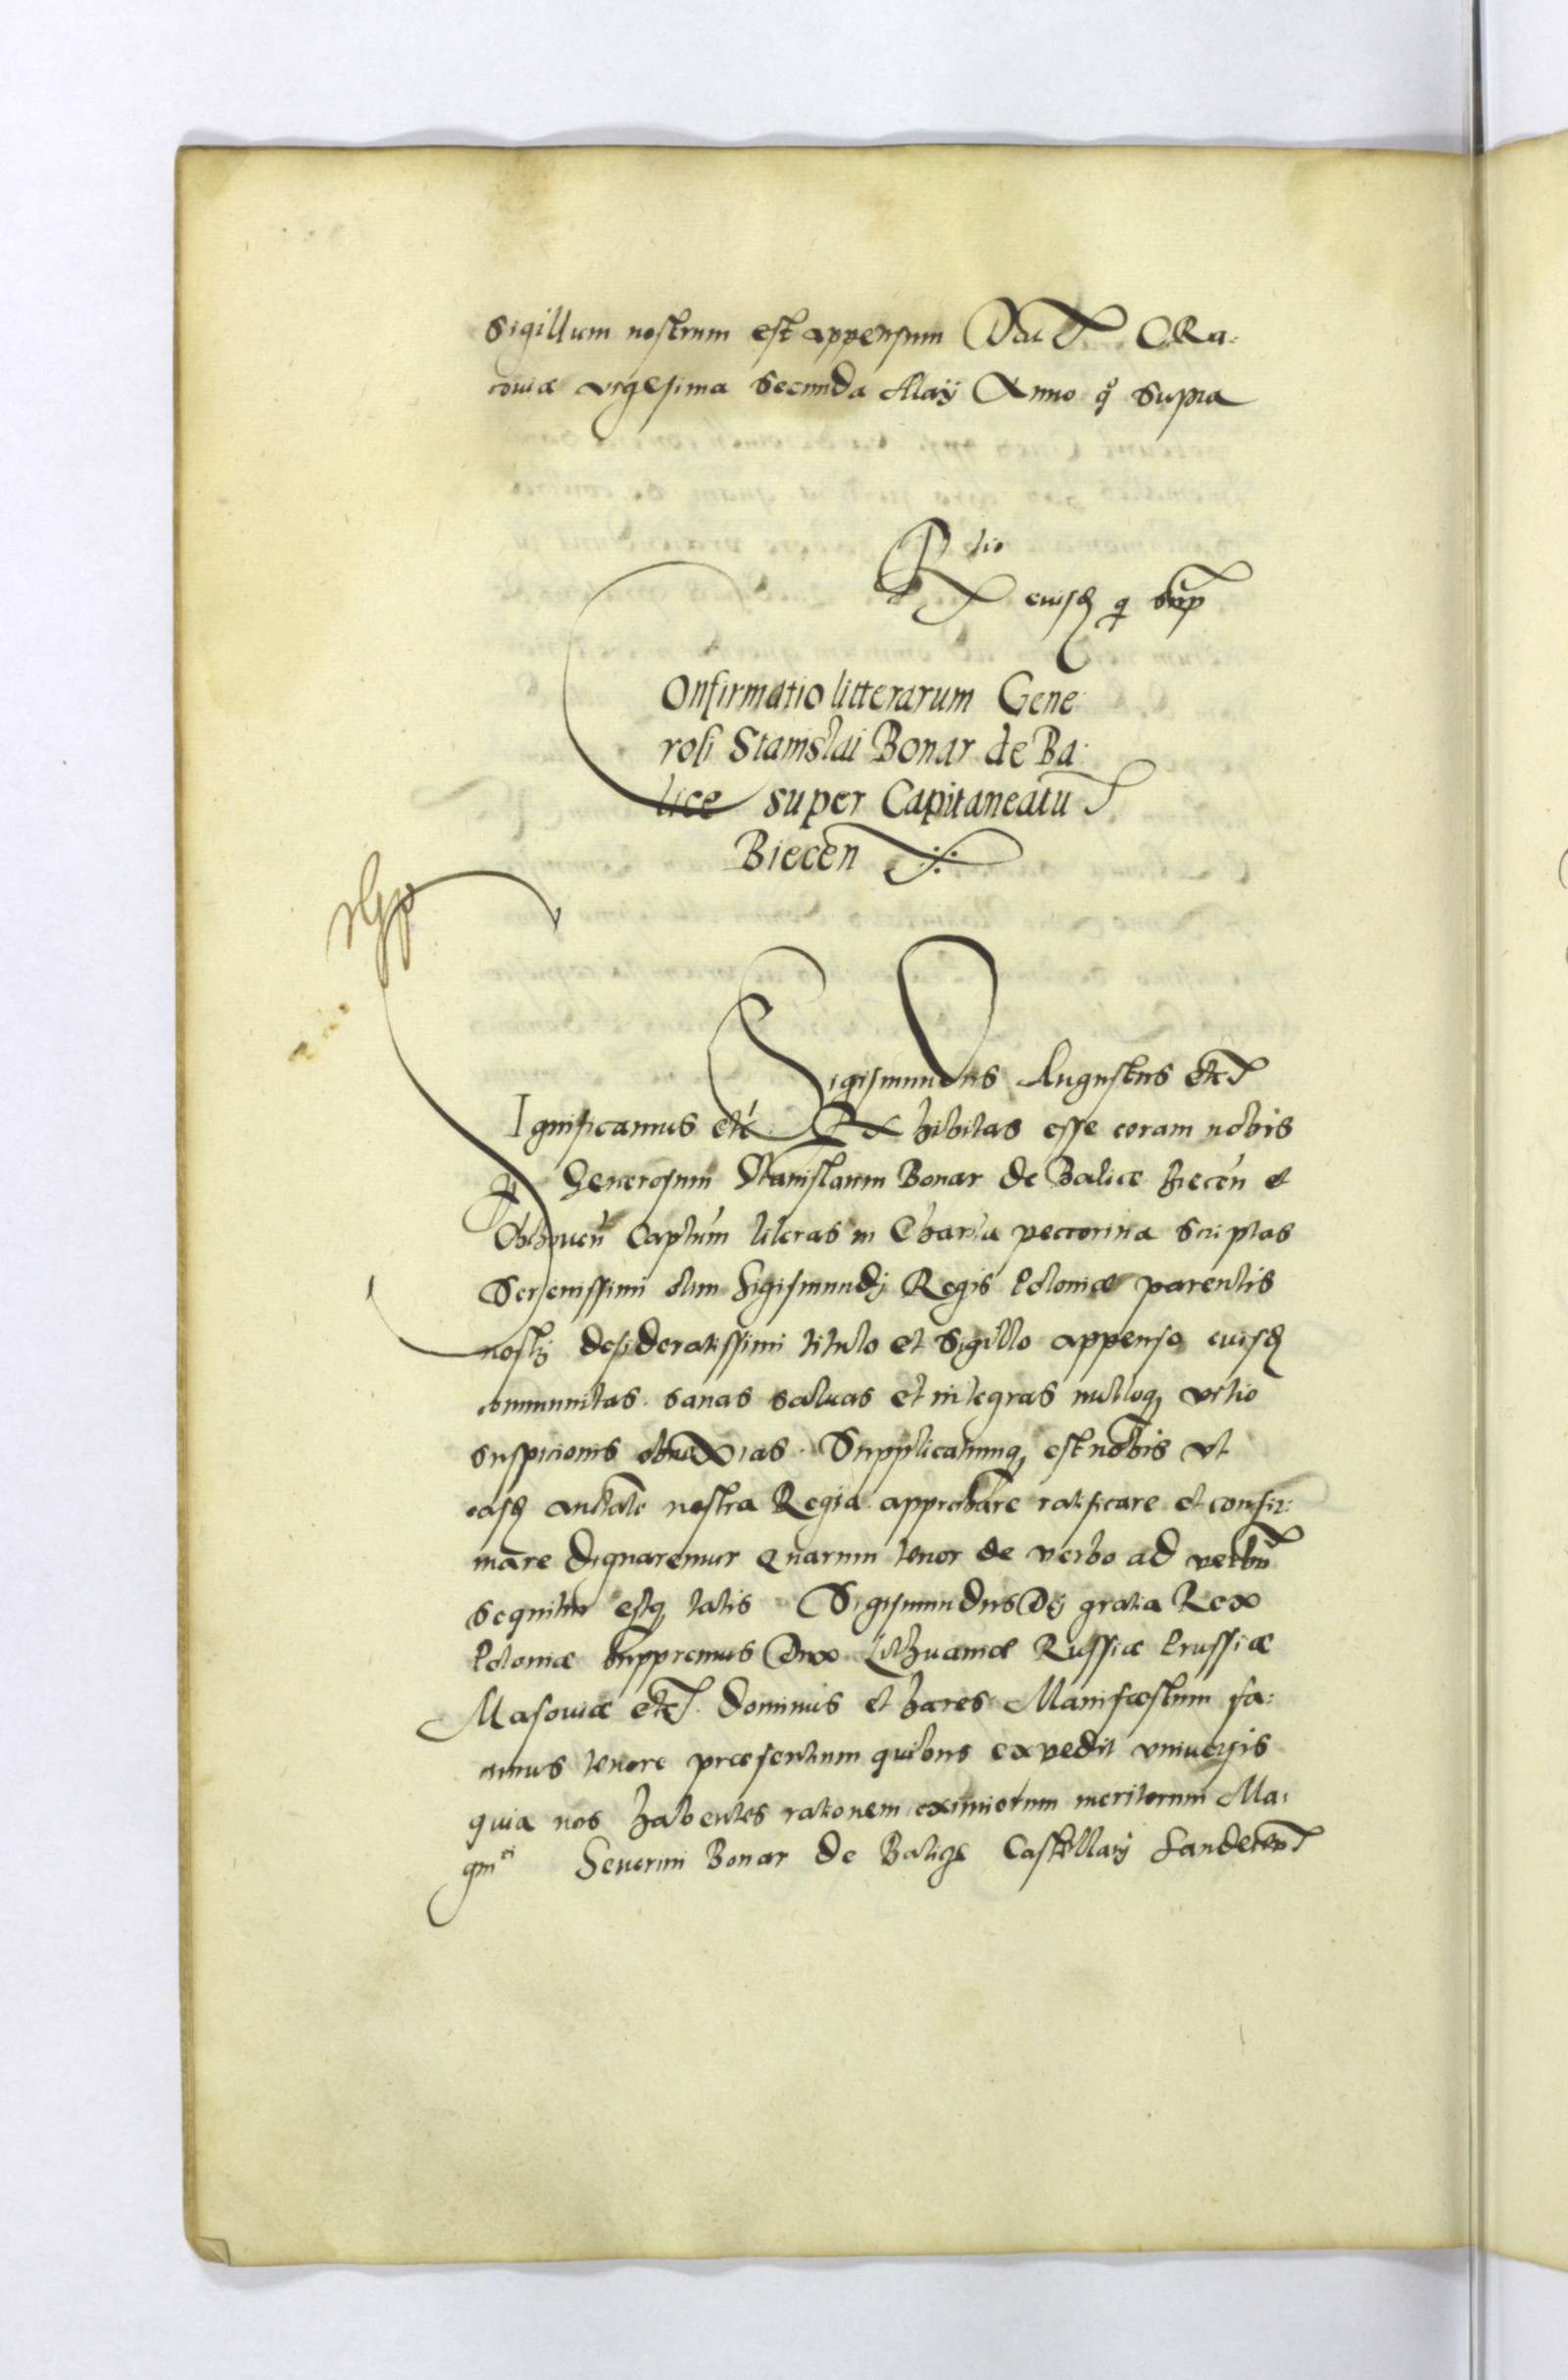 Sigillum nostrum est appensum Dat CRa:
coviæ vigesima Secunda Maij Anno q° Supra
R tio
eiusd q sup
COnfirmatio litterarum Gene
rosi Stanislai Bonar de Ba:
lice super Capitaneatu
Biecen
Sigismundus Augustus etc
SIgnificamus etc Exhibitas esse coram nobis
p Generosum Stanislaum Bonar de Balice Biecen et
Capitum literas in Charta pecorina Scriptas
Serenissimi olim Sigismundj Regis Poloniæ parentis
nostri desideratissimi titulo et Sigillo appenso eiusd
communitas sanas saluas et integras nulloq vitio
suspicionis obnoxias. Supplicatumq est nobis vt
easd auctate nostra Regia approbare ratificare et confir:
mare dignaremur Quarum tenor de verbo ad verbu
sequitur estq talis Sigismundus Dej gratia Rex
Poloniæ Suppremus Dux Lithuaniæ Russiæ Prussiæ
Masouiæ etc. Dominus et hæres Manifæstum fa:
cimus tenore præsentium quibus expedit vniuersis
quia nos habentes rationem eximiorum meritorum Ma:
gnici Seuerini Bonar de Balice Castellanj Sandecen